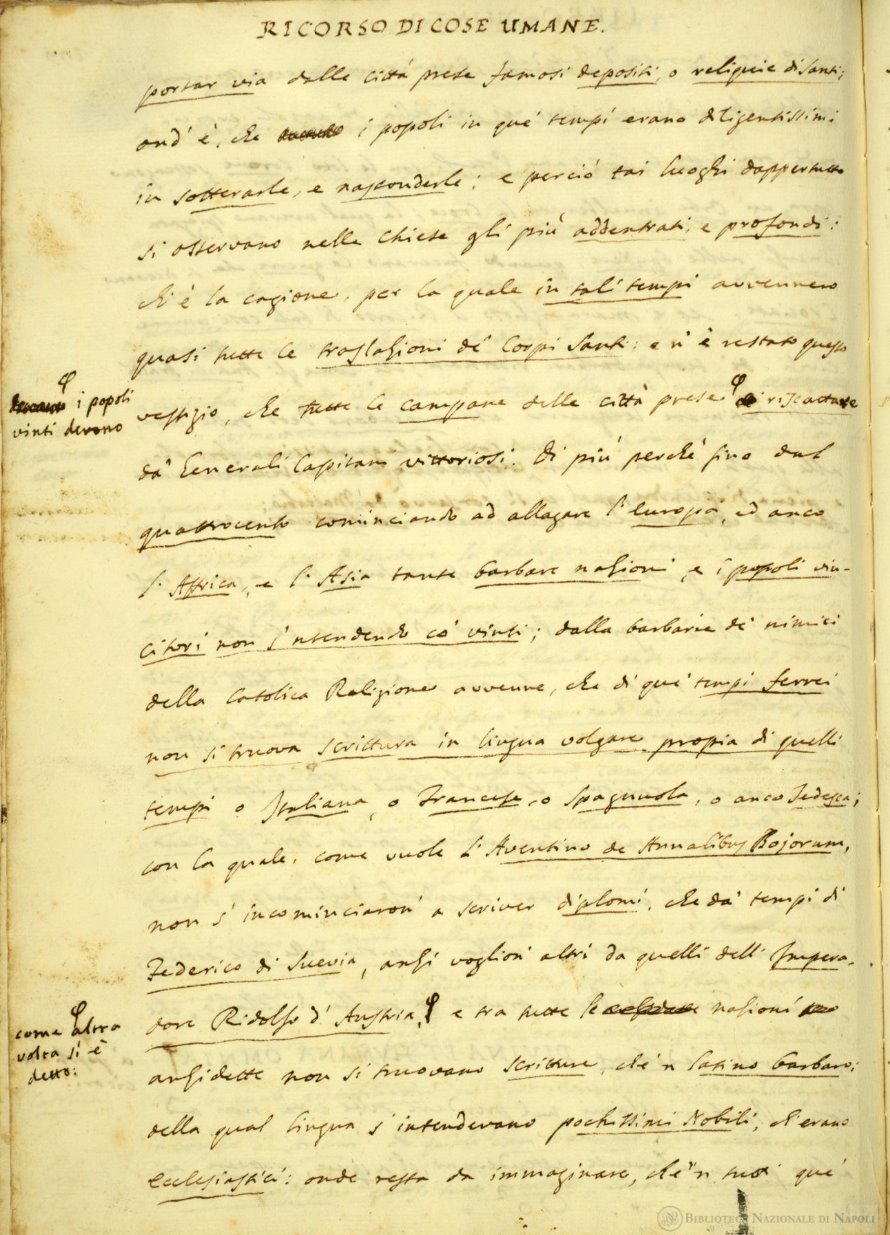 RICORSO DI COSE UMANE.
portar via dalle città prese famosi depositi, o reliquie di Santi;
ond' è, che i popoli in que' tempi erano diligentissimi
in sotterarle, e nasconderle; e perciò tai luoghi dappertutto
si osservano nelle Chiese gli più addentrati, e profondi:
ch'è la cagione, per la quale in tali tempi avvennero
quasi tutte le traslazioni de' Corpi Santi: e n'è restato questo
vestigio, che tutte le campane delle città prese riscattare
i popoli
vinti devono
da' Generali Capitani vittoriosi. Di più perchè fino dal
quattrocento cominciando ad allagare l'Europa, ed anco
l'Affrica, e l'Asia tante barbare nazioni, e i popoli vin-
citori non s'intendendo co' vinti; dalla barbarie de' nimici
della Catolica Religione avvenne, che di que' tempi ferrei
non si truova scrittura in lingua volgare propia di quelli
tempi o Italiana, o Francese, o Spagnuola, o anco Tedesca;
con la quale, come vuole l'Aventino de Annalibus Bojorum,
non s'incominciaron' a scriver diplomi, che da' tempi di
Federico di Suevia, anzi voglion' altri da quelli dell' Impera-
dore Ridolfo d'Austria, e tra tutte le nazioni
come altra
volta si è
detto:
anzidette non si truovano scritture, che 'n latino barbaro;
della qual lingua s'intendevano pochissimi Nobili, ch'erano
Ecclesiastici: onde resta da immaginare, che 'n tutti que'
BIBLIOTECA NAZIONALE DI NAPOLI